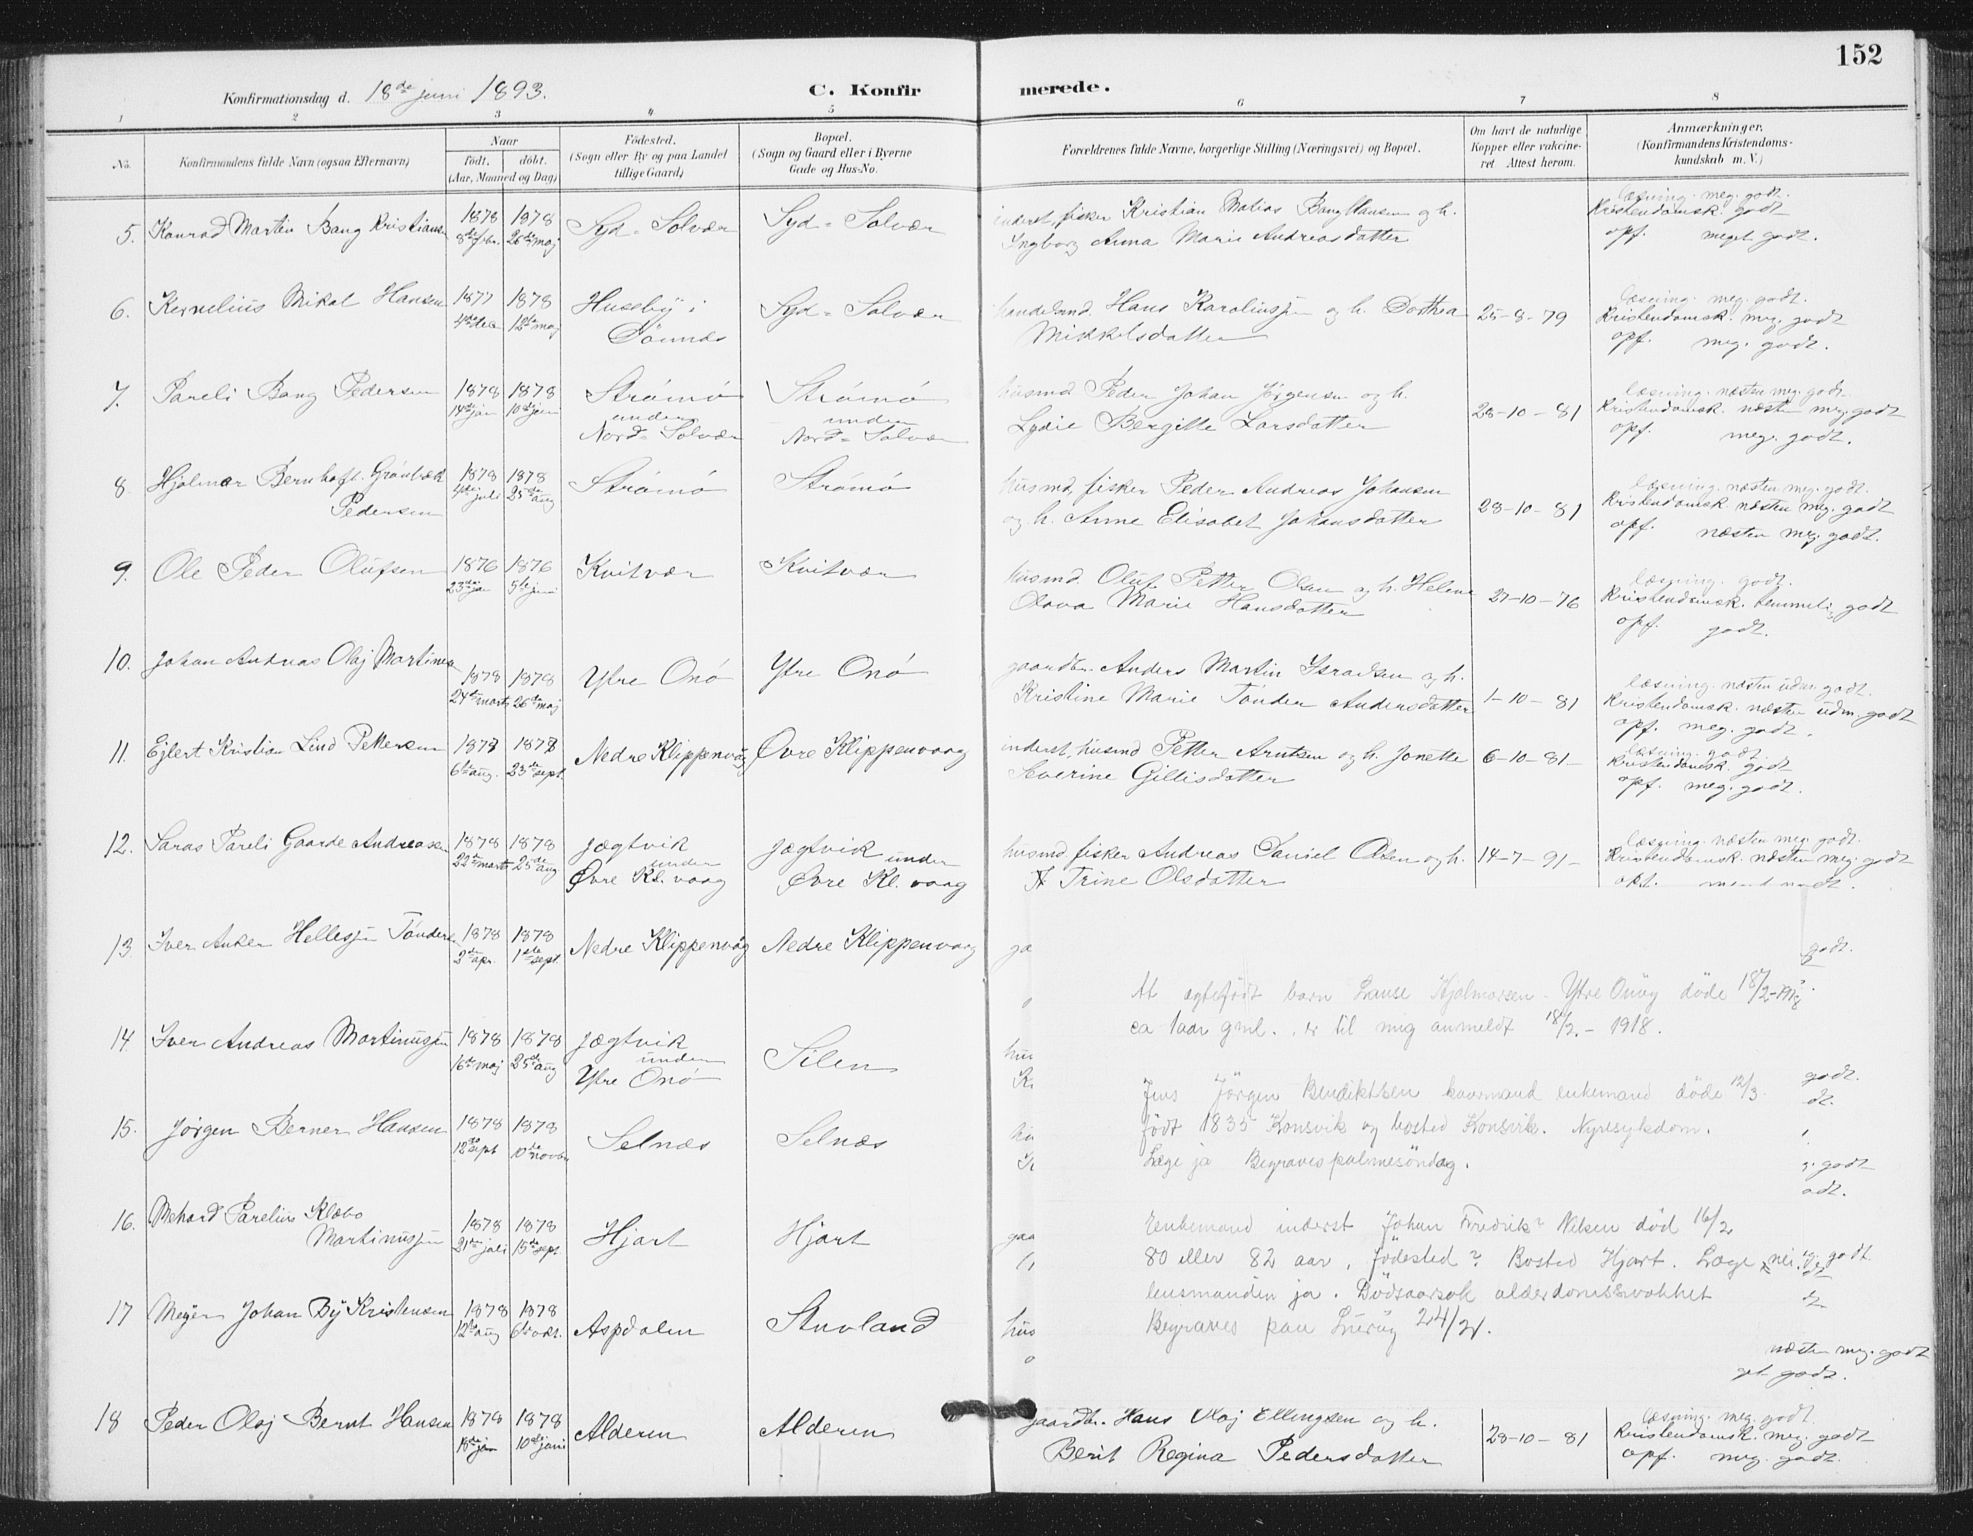 152
Konfirmationsdag d. 18de juni 1893.
C. Konfirmerede.
1 2 3 4 5 6 7 8
No.
Konfirmandens fulde Navn (ogsaa Efternavn)
Naar
født. døbt.
(Aar, Maaned og Dag)
Fødested.
(Sogn eller By og paa Landet
tillige Gaard)
Bopæl.
(Sogn og Gaard eller i Byerne
Gade og Hus-No.
Forældrenes fulde Navne, borgerlige Stilling (Næringsvei) og Bopæl.
Om havt de naturlige
Kopper eller vakcine-
ret Attest herom.
Anmærkninger.
(Konfirmandens Kristendoms-
kundskab m. V.)
5. Konrad Martin Bang Kristiansen 1878 8de febr. 1878 26de maj Syd-Solvær Syd-Solvær
inderst, fisker Kristian Matias Bang Hansen og h.
Ingborg Anna Marie Andreasdatter
læsning. meg. godt.
Kristendomsk. godt
opf. meget godt.
6. Kornelius Mikal Hansen 1877 4de dec 1878 12te maj Huseby i Dønnæs Syd-Solvær
handelsmd. Hans Karoliussen og h. Dorthea
Mikkelsdatter
25-8-79
læsning. meg. godt.
Kristendomsk. meg. godt
opf. meg. godt.
7. Pareli Bang Pedersen 1878 14de jan 1878 10de juni Strømø under Nord-Solvær Strømø under Nord-Solvær
husmd. Peder Johan Jørgensen og h.
Lydie Bergitte Larsdatter
28-10-81
læsning. næsten meg. godt
Kristendomsk. næsten meg. godt
opf. meg. godt.
8. Hjalmar Bernhoft Grønbæck Pedersen 1878 juli 1878 25de aug Strømø Strømø
husmd, fisker Peder Andreas Johansen
og h. Anne Elisabet Johansdatter
28-10-81
læsning. næsten meg. godt.
Kristendomsk. næsten meg. godt
opf. næsten meg. godt.
9. Ole Peder Olufsen 1876 23de jan 1876 5te juni Kvitvær Kvitvær
husmd. Oluf Petter Olsen og h. Helene
Olava Marie Hansdatter
27-10-76
læsning. godt.
Kristendomsk. temmelig godt
opf. godt.
10. Johan Andreas Olaj Martines 1878 24de marts 1878 26de maj Ytre Onø Ytre Onø
gaardbr. Anders Martin Israelsen og h.
Kristine Marie Tønder Andersdatter
1-10-81
læsning. næsten udm. godt.
Kristendomsk. næsten udm. godt
opf. meg. godt.
11. Ejlert Kristian Lind Pettersen 1877 6te aug. 1877 23de sept. Nedre Klippenvåg Øvre Klippenvaag
inderst, husmd Petter Arntsen og h. Jonette
Severine Gillisdatter
6-10-81-
læsning. godt
Kristendomsk. godt
opf. meg. godt.
12. Saras Pareli Gaarde Andreasen 1878 22de marts 1878 25de aug Jægtvik under Øvre Kl. vaag Jægtvik under Øvre Kl. vaag
husmd, fisker Andreas Daniel Olsen og h.
A Trine Olsdatter
14-7-91-
læsning. næsten meg. godt.
Kristendomsk. næsten meg. godt
opf.
13. Iver Anker Hellesen Tønder 1878 2de apr. 1878 1ste sept. Nedre Klippenvåg Nedre Klippenvaag
ga
godt.
Et egtefødt barn Hjalmarsen. Ytre Onøy døde 18/2-1918
ca 1 aar gml. er til mig anmeldt 18/2. - 1918.
14. Iver Andreas Martinussen 1878 16de maj 1878 25de aug Jægtvik under Ytre Onø Silen
hus
godt.
Jens Jörgen Bendiktsen kaarmand enkemand döde 12/3.
født 1835 Konsvik og bosted Konsvik. Nyresykdom.
Læge ja Begraves palmesöndag.
15. Jørgen Berner Hansen 1878 18de sept 1878 10de novbr Selnæs Selnæs
godt
odt.
16. Mekard Parelius Klæbo Martinussen 1878 21de juli 1878 15de sept. Hjart Hjart
gaa
Enkemand inderst Johan Fredrik? Nilsen död 16/2
80 eller 82 aar, födested? Bosted Hjart. Læge nei.
lensmanden ja. Dödsaarsak alderdomssvakhet
Begraves paa Luröy 24/2.
godt.
17 Meyer Johan By Kristensen 1878 12te aug 1878 6te okt. Aspdalen Stuvland
hus
næsten meg. godt
get godt.
18 Peder Olaj Bernt Hansen 1878 jan 1878 10de juni Alderen Alderen
gaardbr. Hans Olaj Ellingsen og h.
Berit Regina Pedersdatter
28-10-81
læsning. meg. godt.
Kristendomsk. meg. godt
opf. meg. godt.